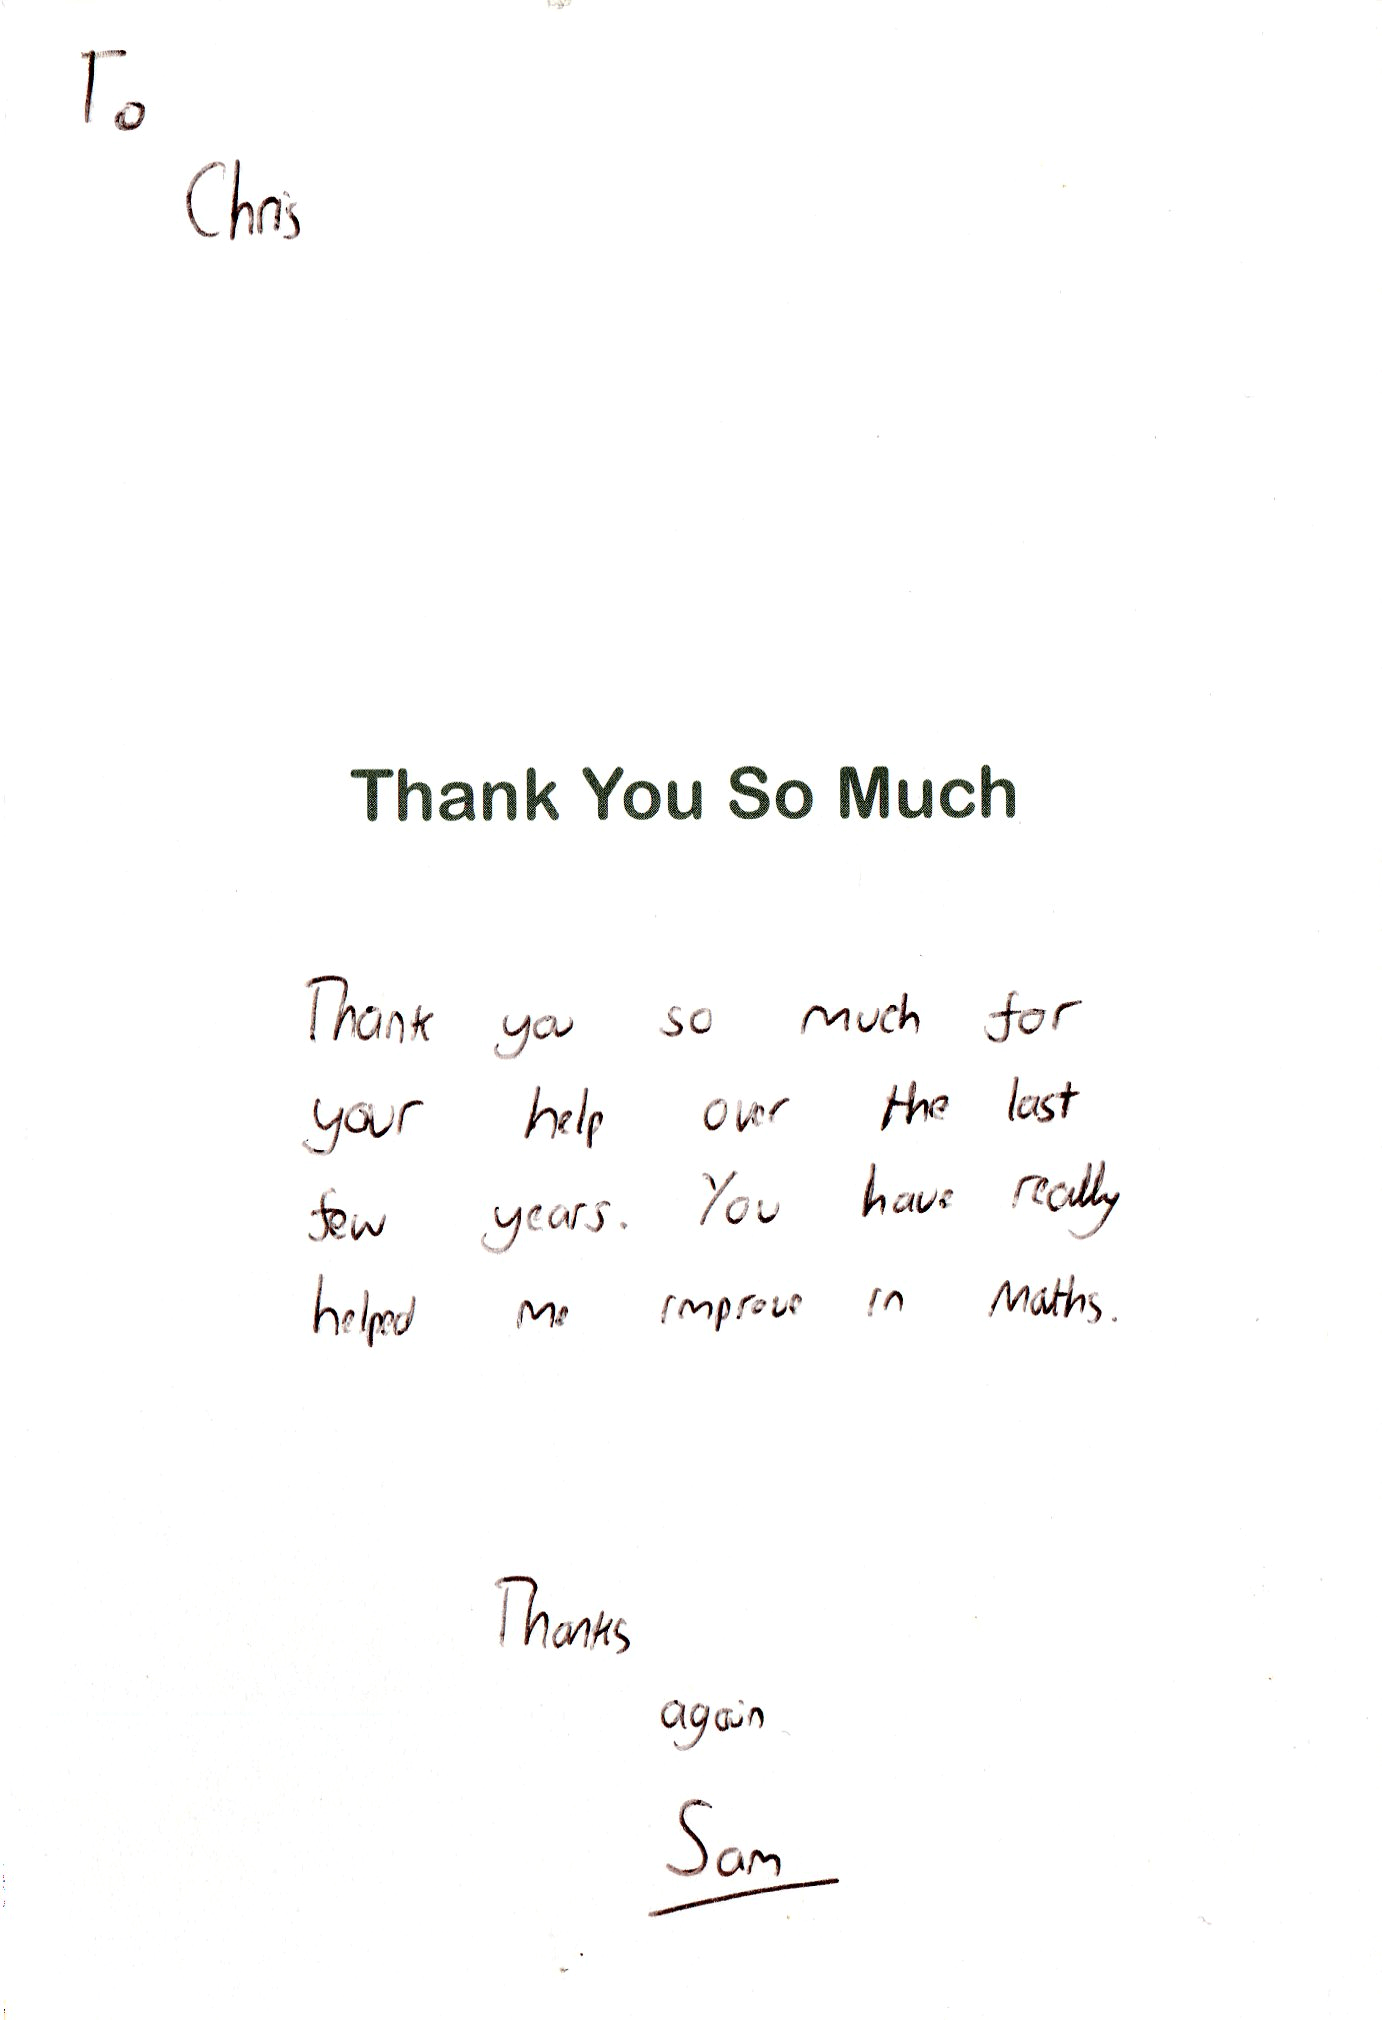 To
Chris
Thank You So Much
Thank you so much for
your help over the last
few years. You have really
helped me improve in Maths.
Thanks
again
Sam